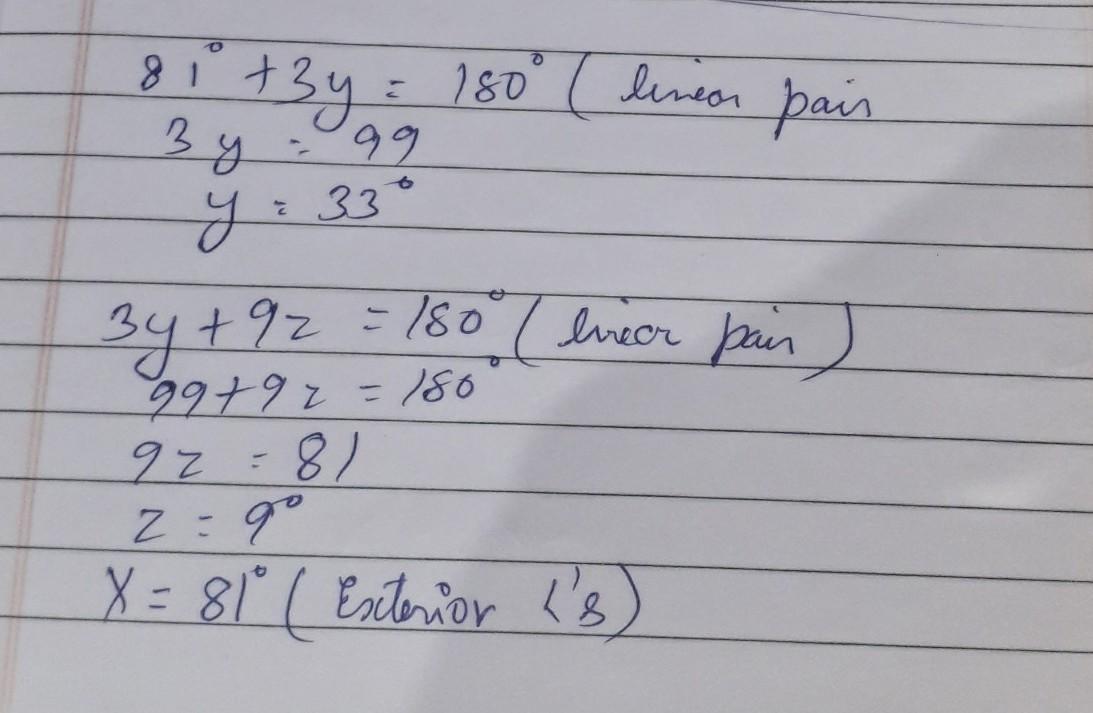 81° + 3y = 180° ( linear pair
3y = 99
y = 33°
3y + 9z = 180° ( linear pair )
99 + 9z = 180°
9z = 81
z = 9°
X = 81° ( Exterior <'s )